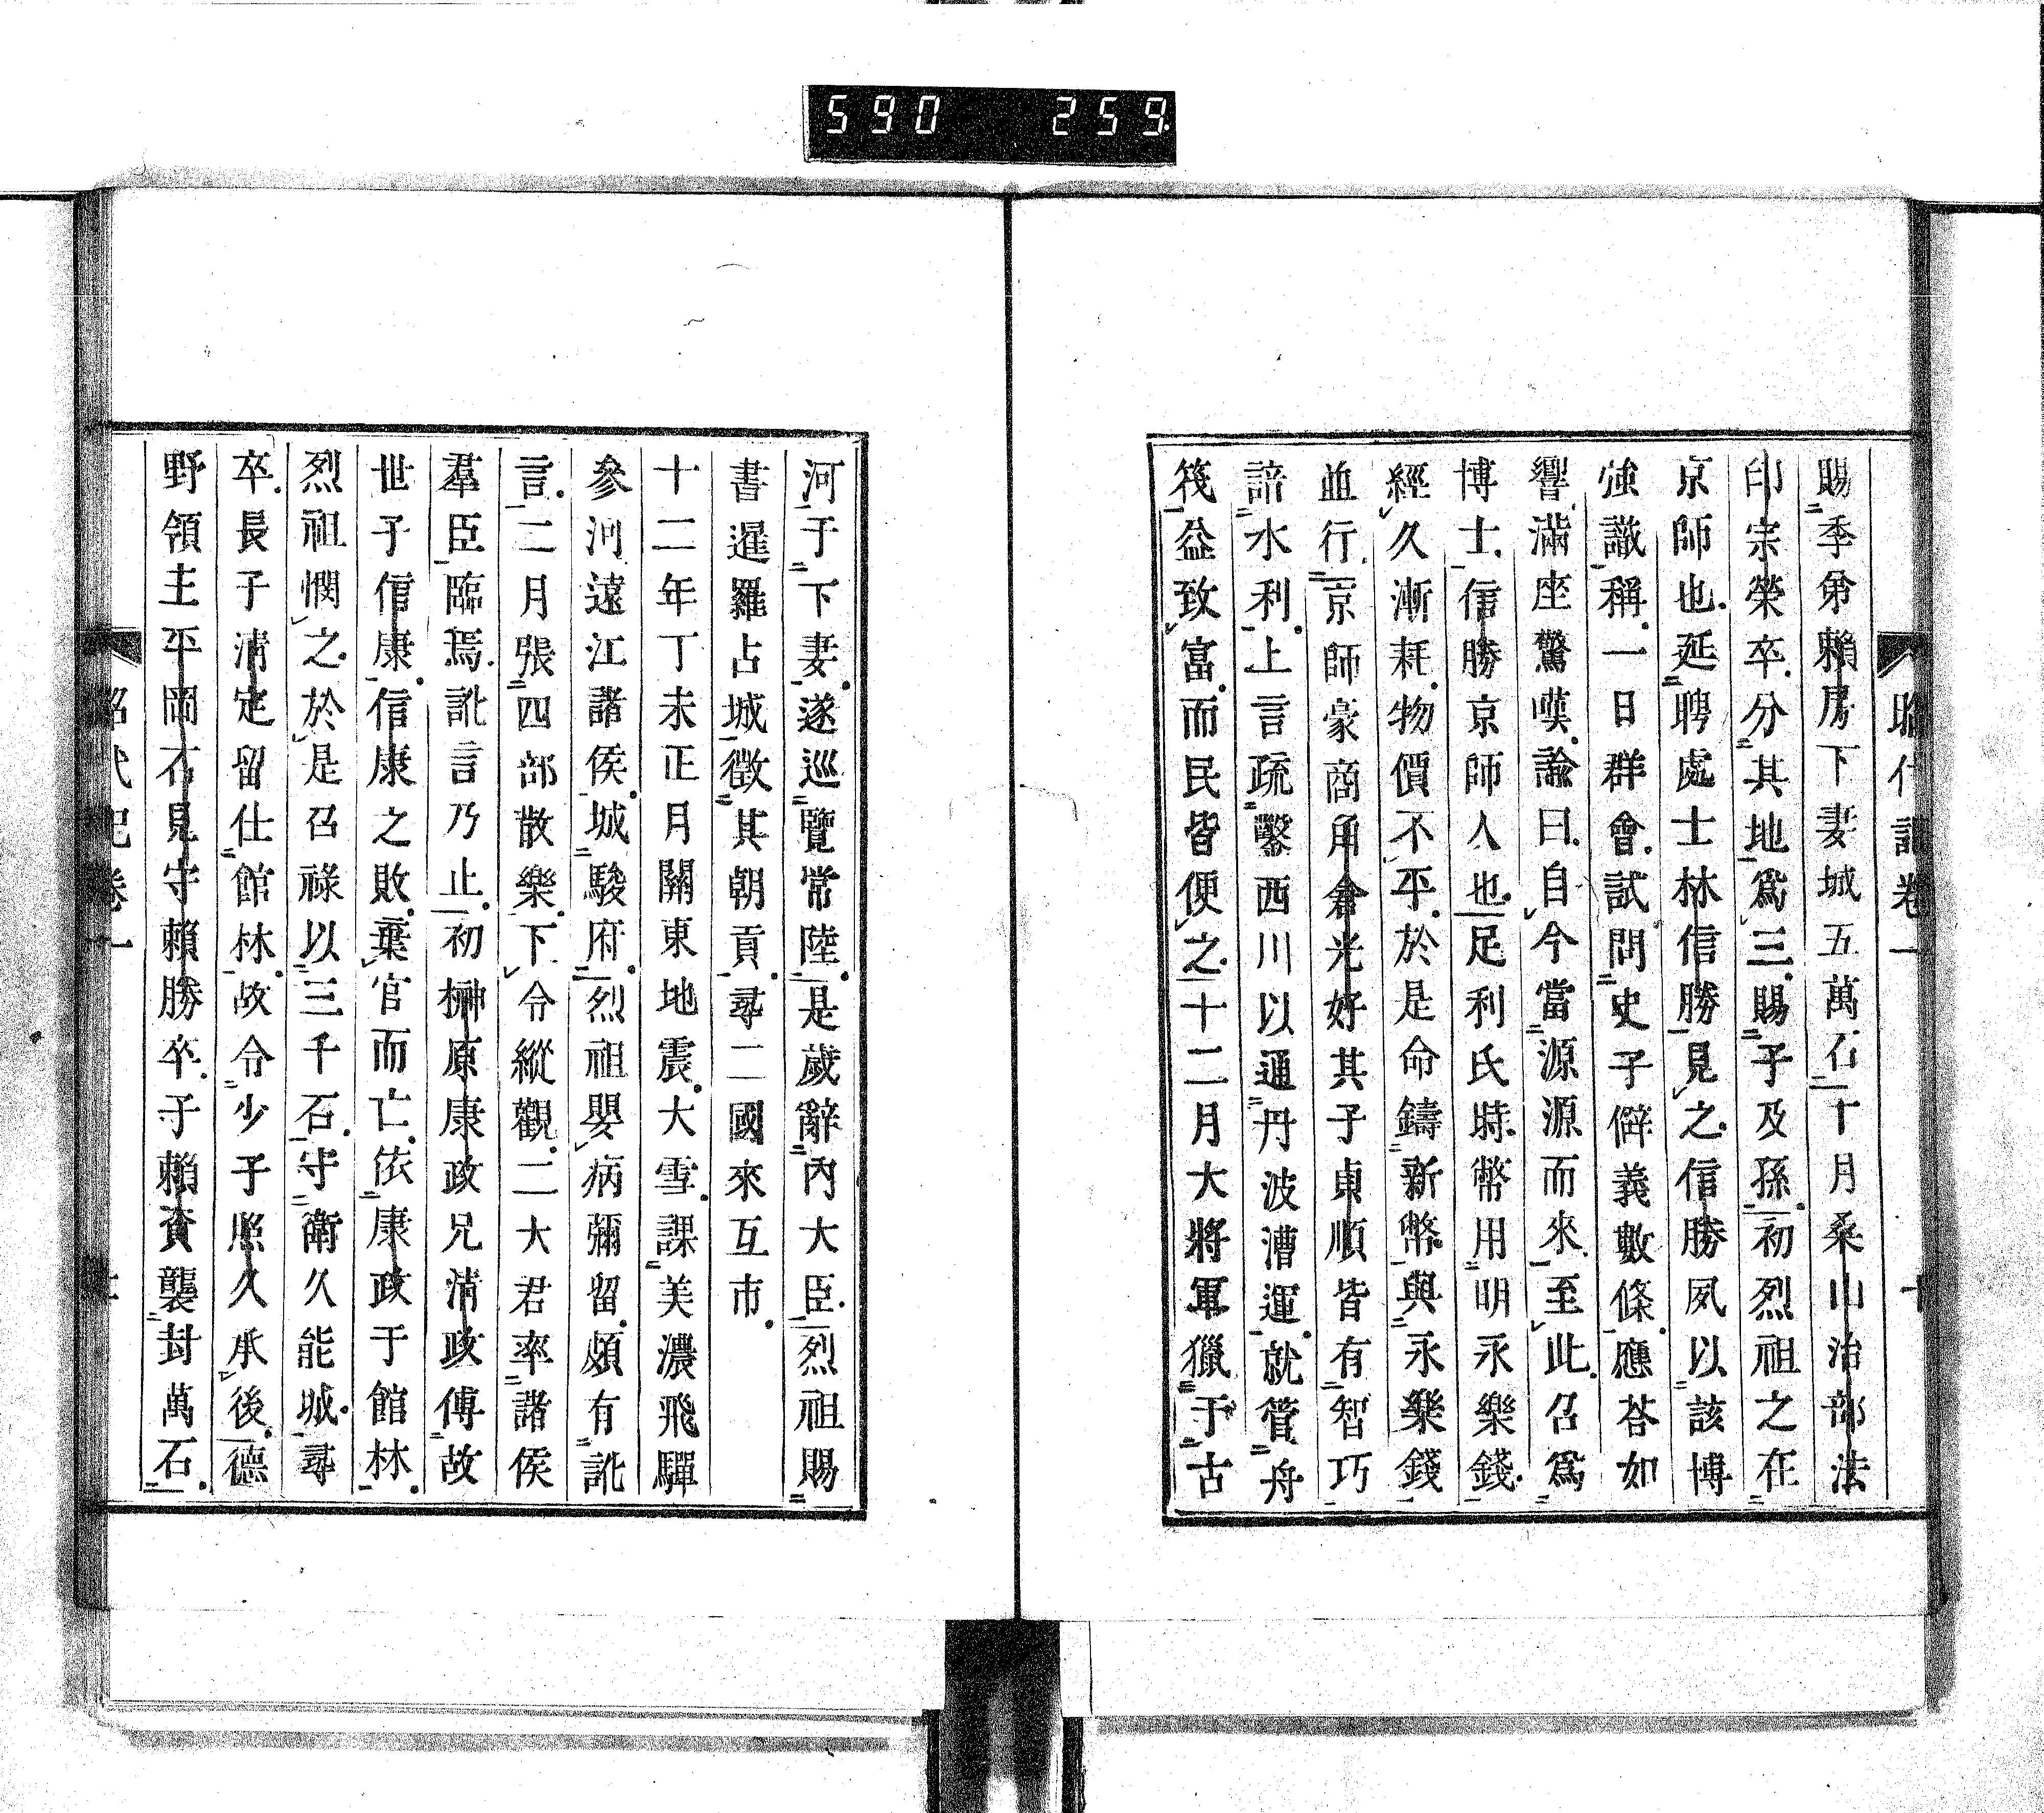 590 259
昭代記卷一 十
賜季弟賴房下妻城五萬石十月桑山治部法
印宗榮卒分其地爲三賜子及孫初烈祖之在
京師也延聘處士林信勝見之信勝夙以該博
強識稱一日群會試問史子僻義數條應荅如
響滿座驚嘆諭曰自今當源源而來至此召爲
博士信勝京師人也足利氏時幣用明永樂錢
經久漸耗物價不平於是命鑄新幣與永樂錢
並行京師豪商角倉光好其子貞順皆有智巧
諳水利上言疏鑿西川以通丹波漕運就管舟
筏益致富而民皆便之十二月大將軍獵于古
河于下妻遂巡覽常陸是歲辭内大臣烈祖賜
書暹羅占城徴其朝貢尋二國來互市
十二年丁未正月關東地震大雪課美濃飛驒
參河遠江諸侯城駿府烈祖嬰病彌留頗有訛
言二月張四部散樂下令縱觀二大君率諸侯
羣臣臨焉訛言乃止初榊原康政兄清政傅故
世子信康信康之敗棄官而亡依康政于館林
烈祖憫之於是召祿以三千石守衛久能城尋
卒長子清定留仕館林故令少子照久承後德
野領主平岡石見守賴勝卒子賴資襲封萬石
昭代記卷一